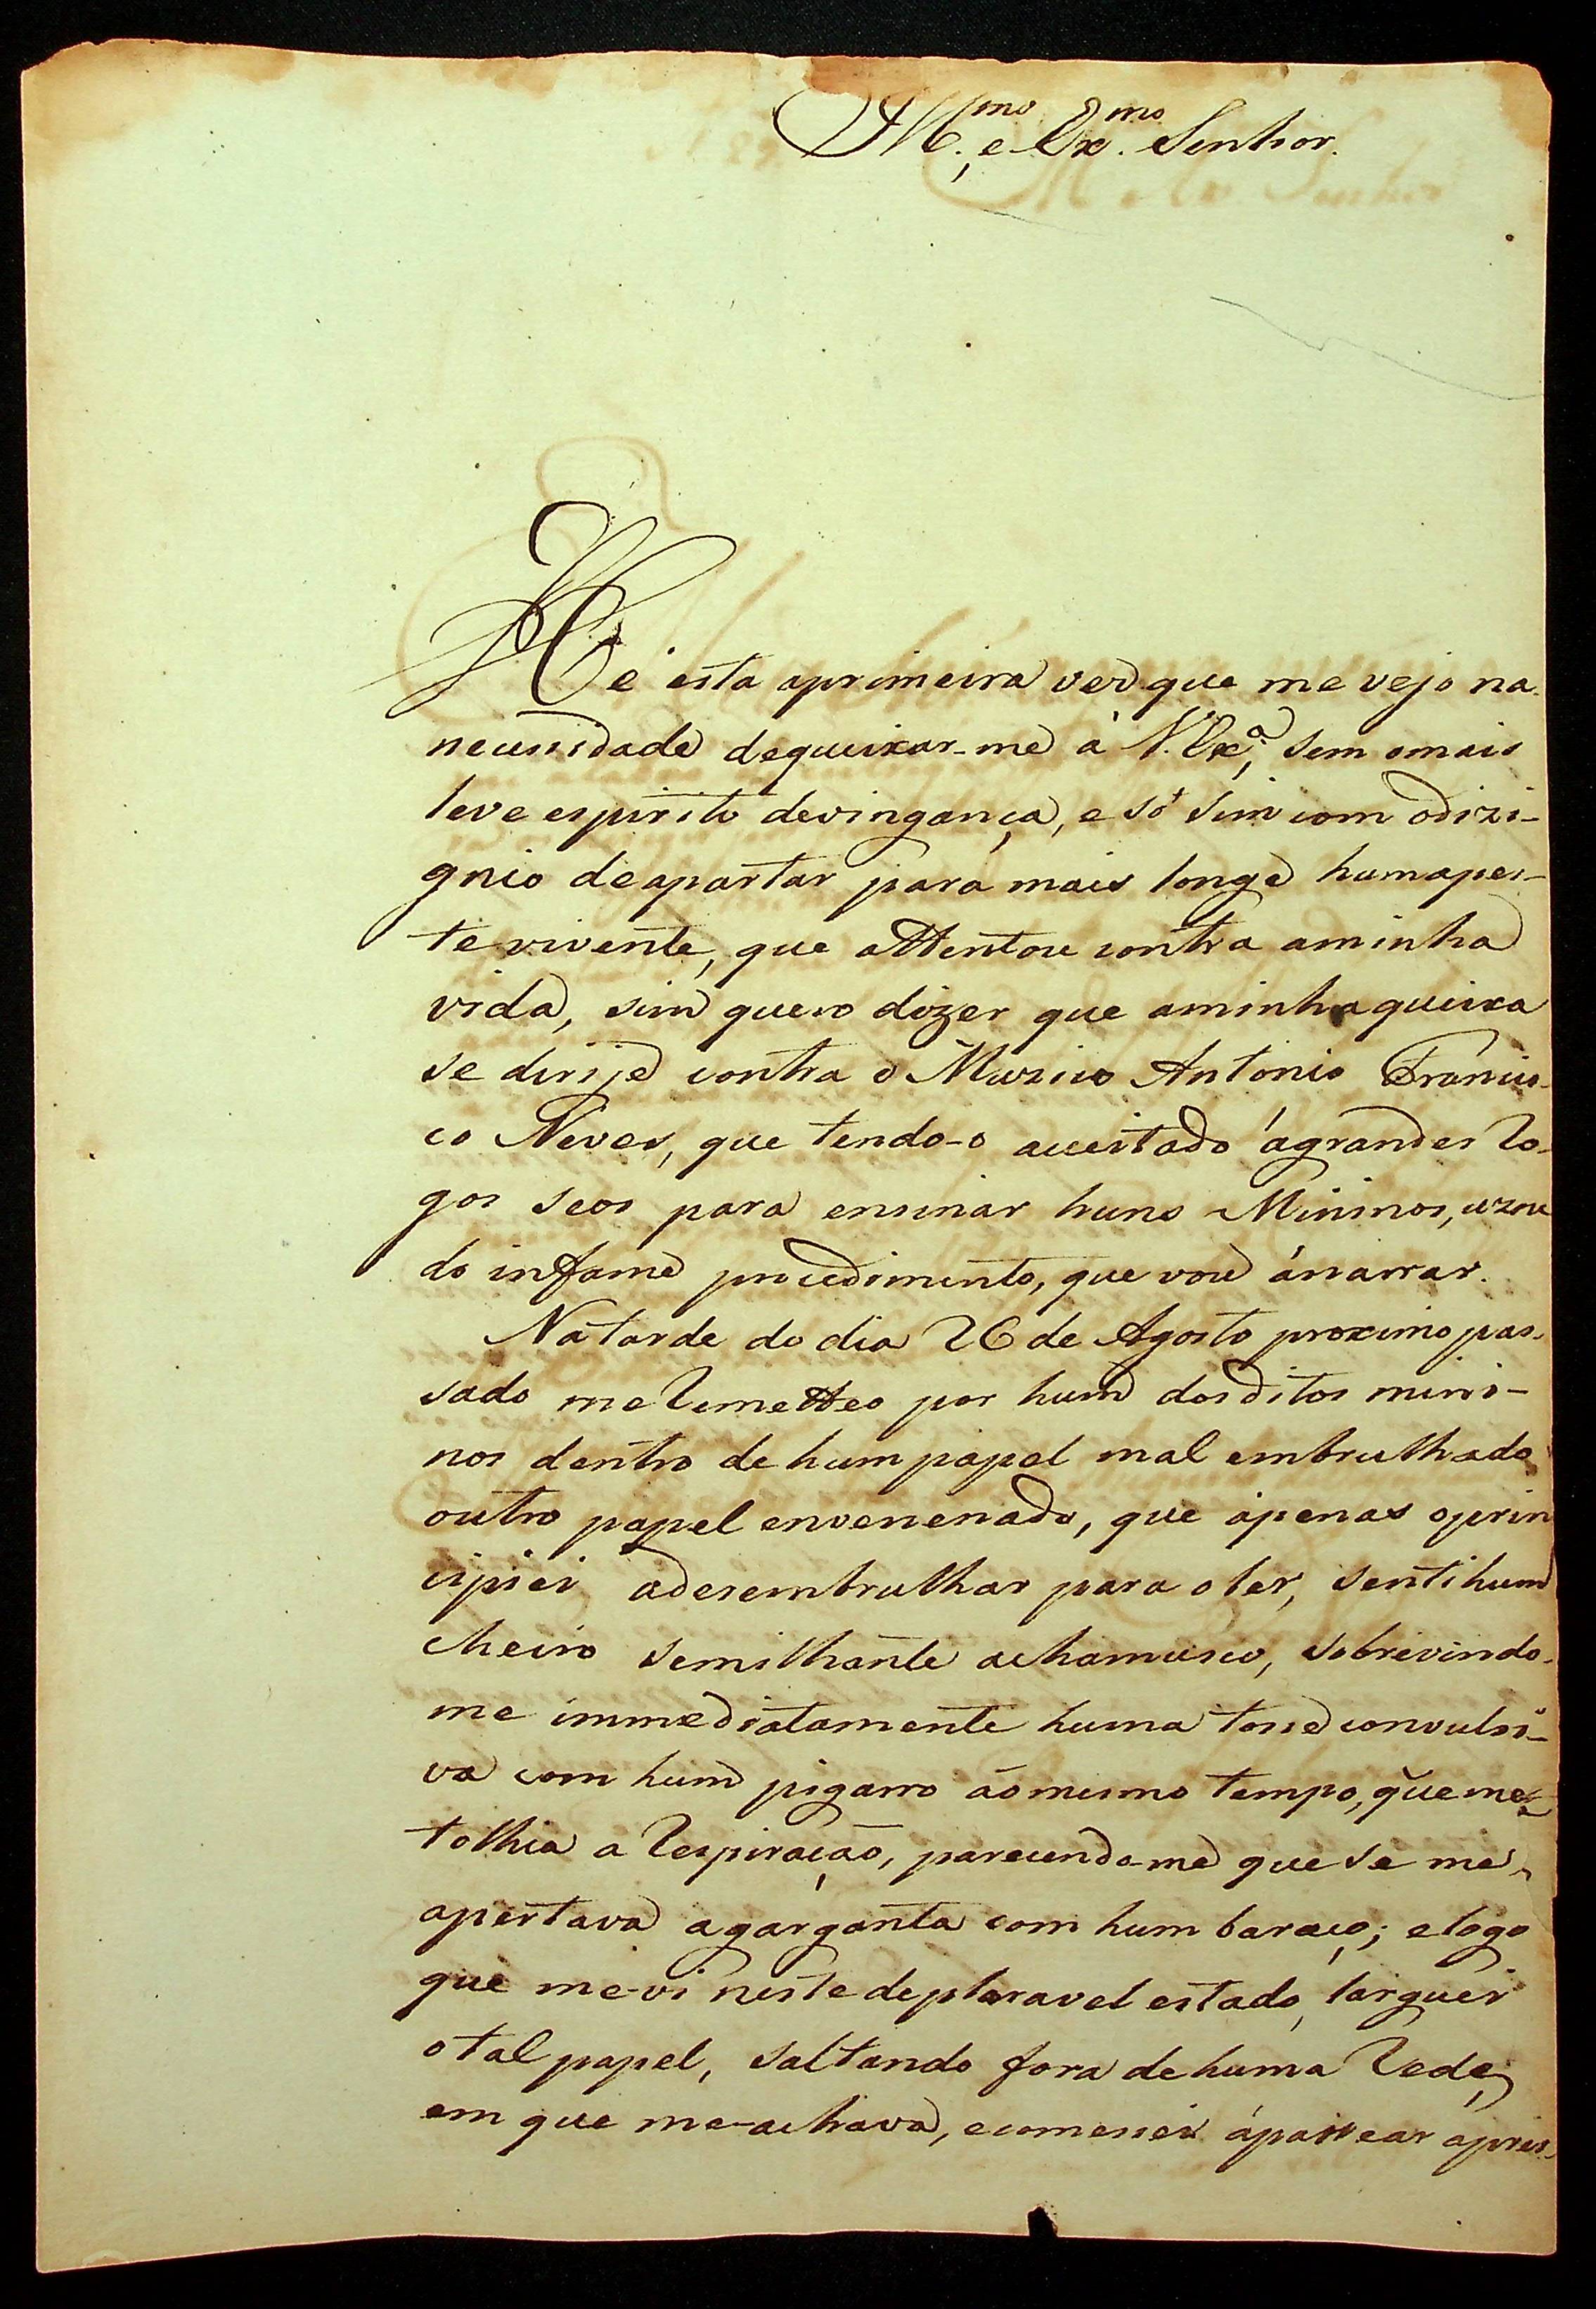 Ill.mo e Ex.mo Senhor.
Hé esta aprimeira vez que me vejo na
necessidade dequeixar-me á V. Ex.a, sem omais
leve espirito devingança, e só sim com odizi-
gnio de apartar para mais longe humapes-
te vivente, que attentou contra aminha
vida, sim quero dizer que aminha queixa
se dirije contra o Muzico Antonio Francis-
co Neves, que tendo-o aceitado ágrandes ro-
gos seos para ensinar huns Mininos, uzou
do infame procedimento, que vou ánarrar.
Na tarde do dia 26 de Agosto proximo pas-
sado me remetteo por hum dos ditos mini-
nos dentro de hum papel mal embrulhado
outro papel envenenado, que apenas oprin
cipiei adesembrulhar para o ler, senti hum
cheiro semilhante achamusco, sobrevindo-
me immediatamente huma tosse convulsi-
va com hum pigarro áomesmo tempo, que me
tolhia a respiração, parecendo-me que se me
apertava agarganta com hum baraço; e logo
que me-vi neste deploravel estado, larguei
o tal papel, saltando fora de huma rede,
em que me-achava, ecomessei ápassear apres-